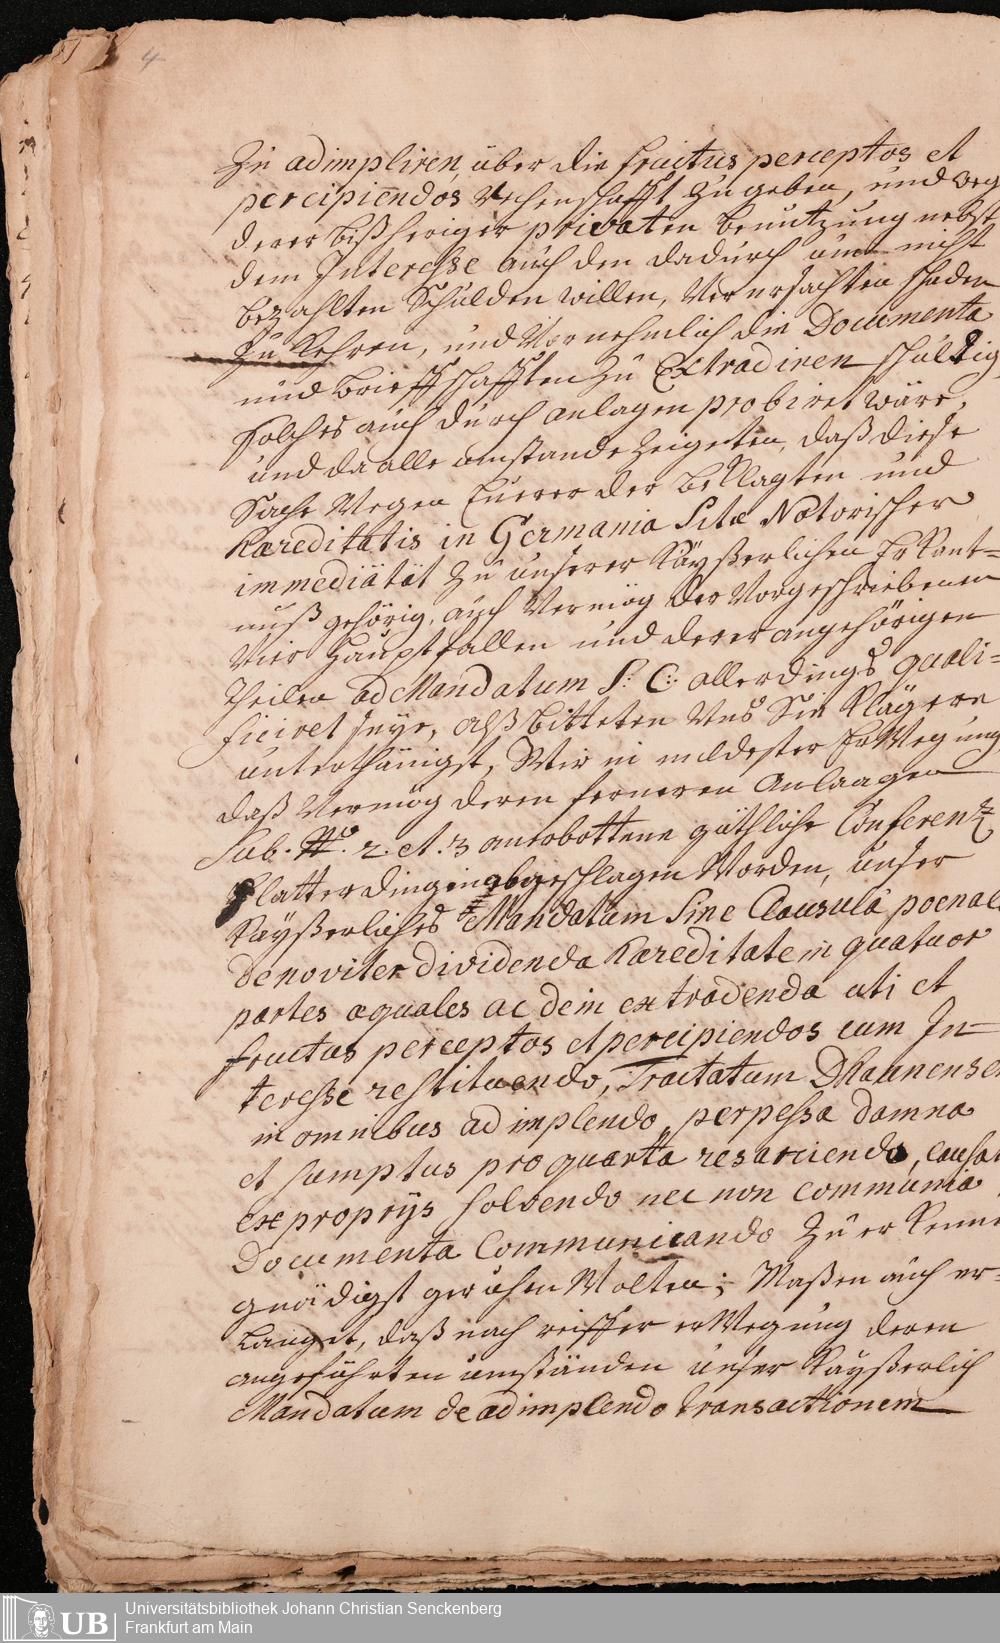 4
zu adimpliren, über die fructus perceptos et
percipiendos Rechenschafft zu geben, und weg
derer bißheriger privaten benutzung nebst
dem Interesse auch den dadurch und nicht
bezahlten Schulden willen, verursachten schaden
zu kehren, und vornehmlich die Documenta
und briefschafften zu Extradiren schuldig,
solches auch durch anlagen probiret wäre,
und da alle umstande zeigeten, daß diese
Sache wegen Euerer der beklagten und
Hæreditatis in Germania Sitæ Notorischer
immediätät zu unserer Kayßerlichen Erkant=
nuß gehörig, auch vermög der vorgeschriebenen
vier Hauptfällen und derer angehörigen
Theilen ad Mandatum S: C: allerdings quali=
ficiret seye, alß bitteten Uns Sie Klägere
unterthänigst, Wir in mildester Erwegung
daß vermög deren ferneren Anlaagen
Sub. No. 2. et. 3 anerbottene güthliche Conferentz
platterdingen abgeschlagen worden, unser
Kayßerliches Mandatum Sine Clausulâ pœnale
de noviter dividenda Hæreditate in quatuor
partes æquales ac dein extradenda uti et
fructus perceptos et percipiendos cum In=
teresse restituendo, Tractatum Dhaunensem
in omnibus adimplendo, perpessa damna
et sumptus pro quarta resarciendo, causam
ex proprÿs solvendo nec non communia
Documenta Communicando zu erkennen
gnädigst geruhen wolten; Maßen auch er=
langet, daß nach reiffer erwegung deren
angeführten umständen unser Kayßerlich
Mandatum de adimplendo transactionem
UB
Universitätsbibliothek Johann Christian Senckenberg
Frankfurt am Main